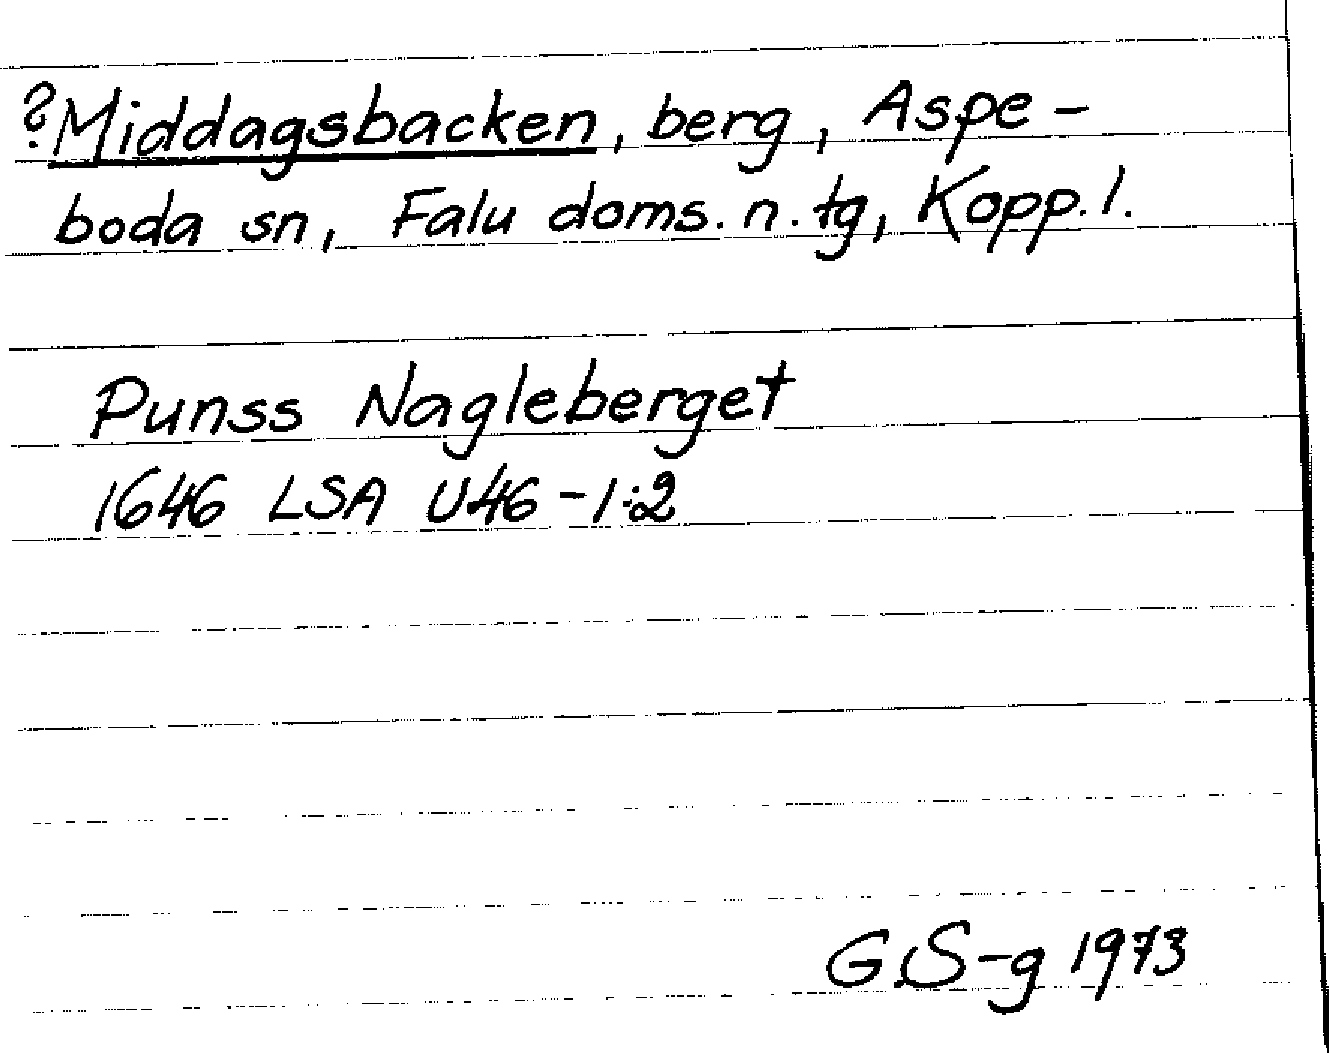 ?Middagsbacken, berg, Aspe-
boda sn, Falu doms. n. tg, Kopp. l.
Punss Nagleberget
1646 LSA U46-1:2
G.S-g 1973